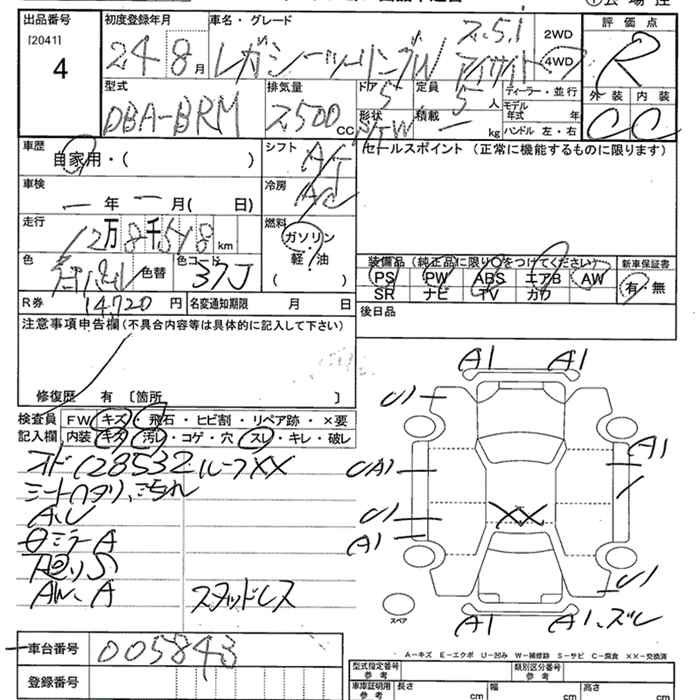 出品番号
[2041]
4
初度登録年月
24 8月
車名・グレード
2.5i
レガシーツーリングW アイサイト
2WD
4WD
評価点
R
外装 内装
C C
型式
DBA-BRM
排気量
2500 CC
ドア 5
形状 S/W
定員 5人
積載 ー kg
ディーラー・並行
モデル年式 年
ハンドル 左・右
車歴
自家用・( )
シフト AT
冷房 AC
セールスポイント (正常に機能するものに限ります)
車検
ー年ー月( 日)
走行
12万8千518 km
燃料
ガソリン
軽・油
( )
色
色替
色コード 37J
装備品 (純正品に限り○をつけてください)
新車保証書
PS PW ABS エアB AW
SR ナビ TV カワ
有・無
R券 14,720円
名変通知期限 月 日
後日品
注意事項申告欄(不具合内容等は具体的に記入して下さい)
修復歴 有 〔箇所 〕
検査員記入欄
FW キズ・飛石・ヒビ割・リペア跡・×要
内装 キズ・汚レ・コゲ・穴・スレ・キレ・破レ
オド128532 ルーフXX
シートヘタリ、汚れ
A、U
ミラーA
AW、A スタッドレス
A1 A1
U1
A1
UA1
U1
A1
XX
U1
スペア
A1 A1、ズレ
A-キズ E-エクボ U-凹み W-補修跡 S-サビ C-腐食 XX-交換済
車台番号 005843
登録番号
型式指定番号 参考
類別区分番号 参考
車庫証明用 参考
長さ cm
幅 cm
高さ cm